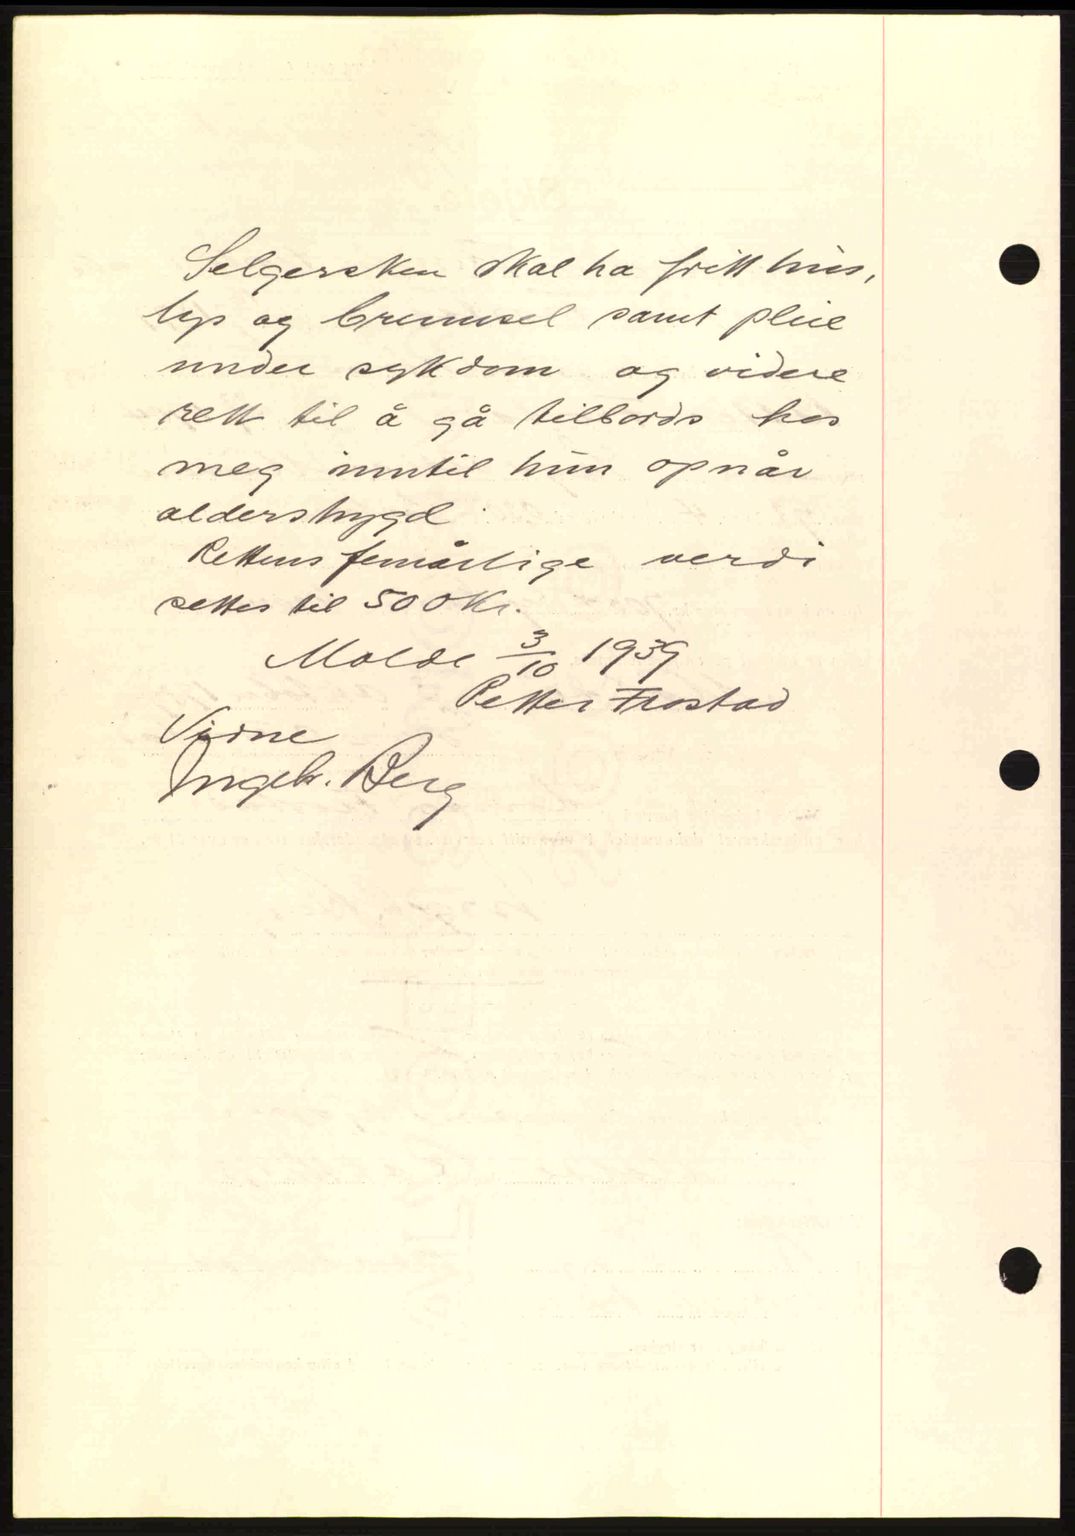 Selgersken skal ha fritt hus,
lys og brennsel samt pleie
under sykdom og videre
rett til å gå tilbords hos
meg inntil hun opnår
alderstrygd
Rettens femårlige verdi
settes til 500 Kr.
Molde 3/10 1939
Petter Frostad
Vidne
Ingeb. Berg